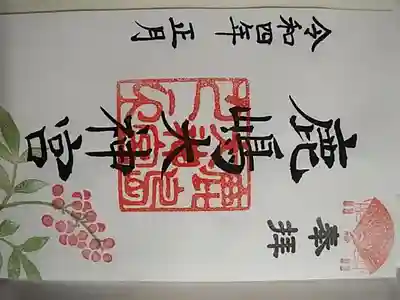 奉拝
鹿嶋大神宮
令和四年 正月